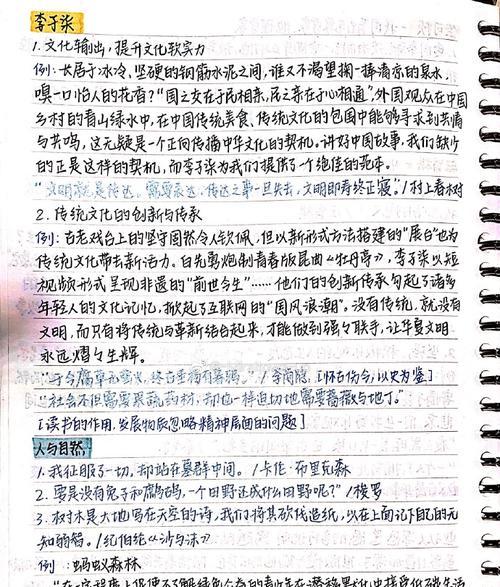 李子柒
1.文化输出，提升文化软实力
例：长居于冰冷，坚硬的钢筋水泥之间，谁又不渴望掬一捧清凉的泉水，
嗅一口怡人的花香？“国之交在于民相亲，民之亲在于心相通”，外国观众在中国
乡村的青山绿水中，在中国传统美食、传统文化的包围中能够寻求到共情
与共鸣，这无疑是一个正向传播中华文化的契机。讲好中国故事，我们缺少
的正是这样的契机，而李子柒为我们提供了一个绝佳的范本。
“文明就是传达。需要表达、传达之事一旦失去，文明即寿终正寝。”/村上春树
2.传统文化的创新与传承
例：古老戏台上的坚守固然令人钦佩，但以新形式方法搭建的“展台”也为
传统文化带去新活力。白先勇炮制青春版昆曲《牡丹亭》，李子柒以短
视频形式呈现非遗的“前世今生”……他们的创新传承勾起了诸多
年轻人的文化记忆，掀起了互联网的“国风浪潮”。没有传统，就没有
文明，而只有将传统与革新结合起来，才能做到强强联手，让华夏文明
永远熠熠生辉。
“于今腐草无萤火，终古垂杨有暮鸦。”/李商隐[怀古伤今，以史为鉴]
“社会不但需要果蔬药材，却也一样迫切地需要蔷薇与地丁。”
[读书的作用，发展物质忽略精神层面的问题]
人与自然
1.我征服了一切，却站在墓群中间。/卡伦·布里克森
2.要是没有兔子和鹧鸪，一个田野还成什么田野呢？”/梭罗
3.树木是大地写在天空的诗，我们将其砍伐造纸，以在上面记下自己的无
知弱智。/纪伯伦《沙与沫》
例：蚂蚁森林